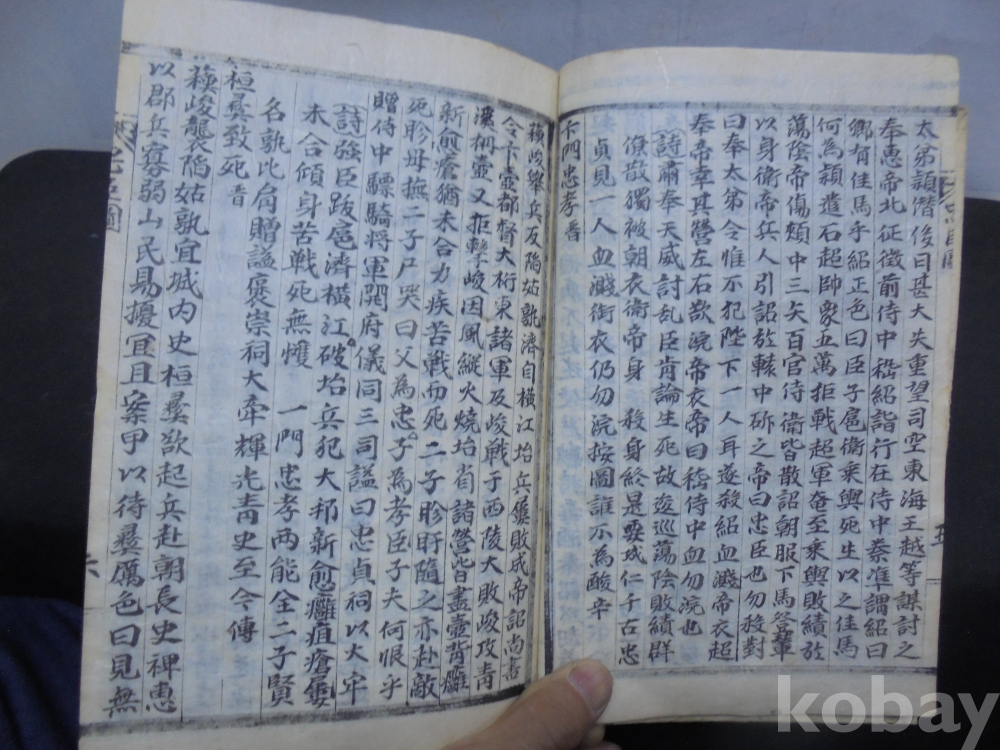 太弟頴僭侈日甚大失重望司空東海王越等謀討之
奉惠帝北征徵前侍中嵇紹詣行在侍中秦准謂紹曰
鄉有佳馬乎紹正色曰臣子扈衛乘輿死生以之佳馬
何為頴遣石超帥眾五萬拒戰超軍奄至乘輿敗績於
蕩陰帝傷頰中三矢百官侍衛皆散詔朝服下馬登輦
以身衛帝兵人引詔於轅中斫之帝曰忠臣也勿殺對
曰奉太弟令惟不犯陛下一人耳遂殺紹血濺帝衣超
奉帝幸其營左右欲浣帝衣帝曰嵇侍中血勿浣也
詩肅奉天威討乱臣肯論生死故逡巡蕩陰敗績群
僚散獨被朝衣衛帝身 殺身終是要成仁千古忠
貞見一人血濺御衣仍勿浣按圖誰不為酸辛
卞門忠孝 晋
蘓峻舉兵反陷姑孰濟自橫江坮兵屢敗成帝詔尚書
令卞壷都督大桁東諸軍及峻戰于西陵大敗峻攻青
溪柵壷又拒擊峻因風縱火燒坮省諸營皆盡壷背癰
新愈瘡猶未合力疾苦戰而死二子眕盱隨之亦赴敵
死眕母撫二子尸哭曰父為忠臣子為孝子夫何恨乎
贈侍中驃騎將軍開府儀同三司謚曰忠貞祠以大牢
詩強臣跋扈濟橫江破坮兵犯大邦新愈癰疽瘡屢
未合傾身苦戰死無懼 一門忠孝兩能全二子賢
名孰比肩贈謚褒崇祠大牢輝光青史至今傳
桓彛致死 晋
蘓峻襲陷姑孰宣城内史桓彛欲起兵赴朝長史裨惠
以郡兵寡弱山民易擾宜且案甲以待彛厲色曰見無
五
六
kobay